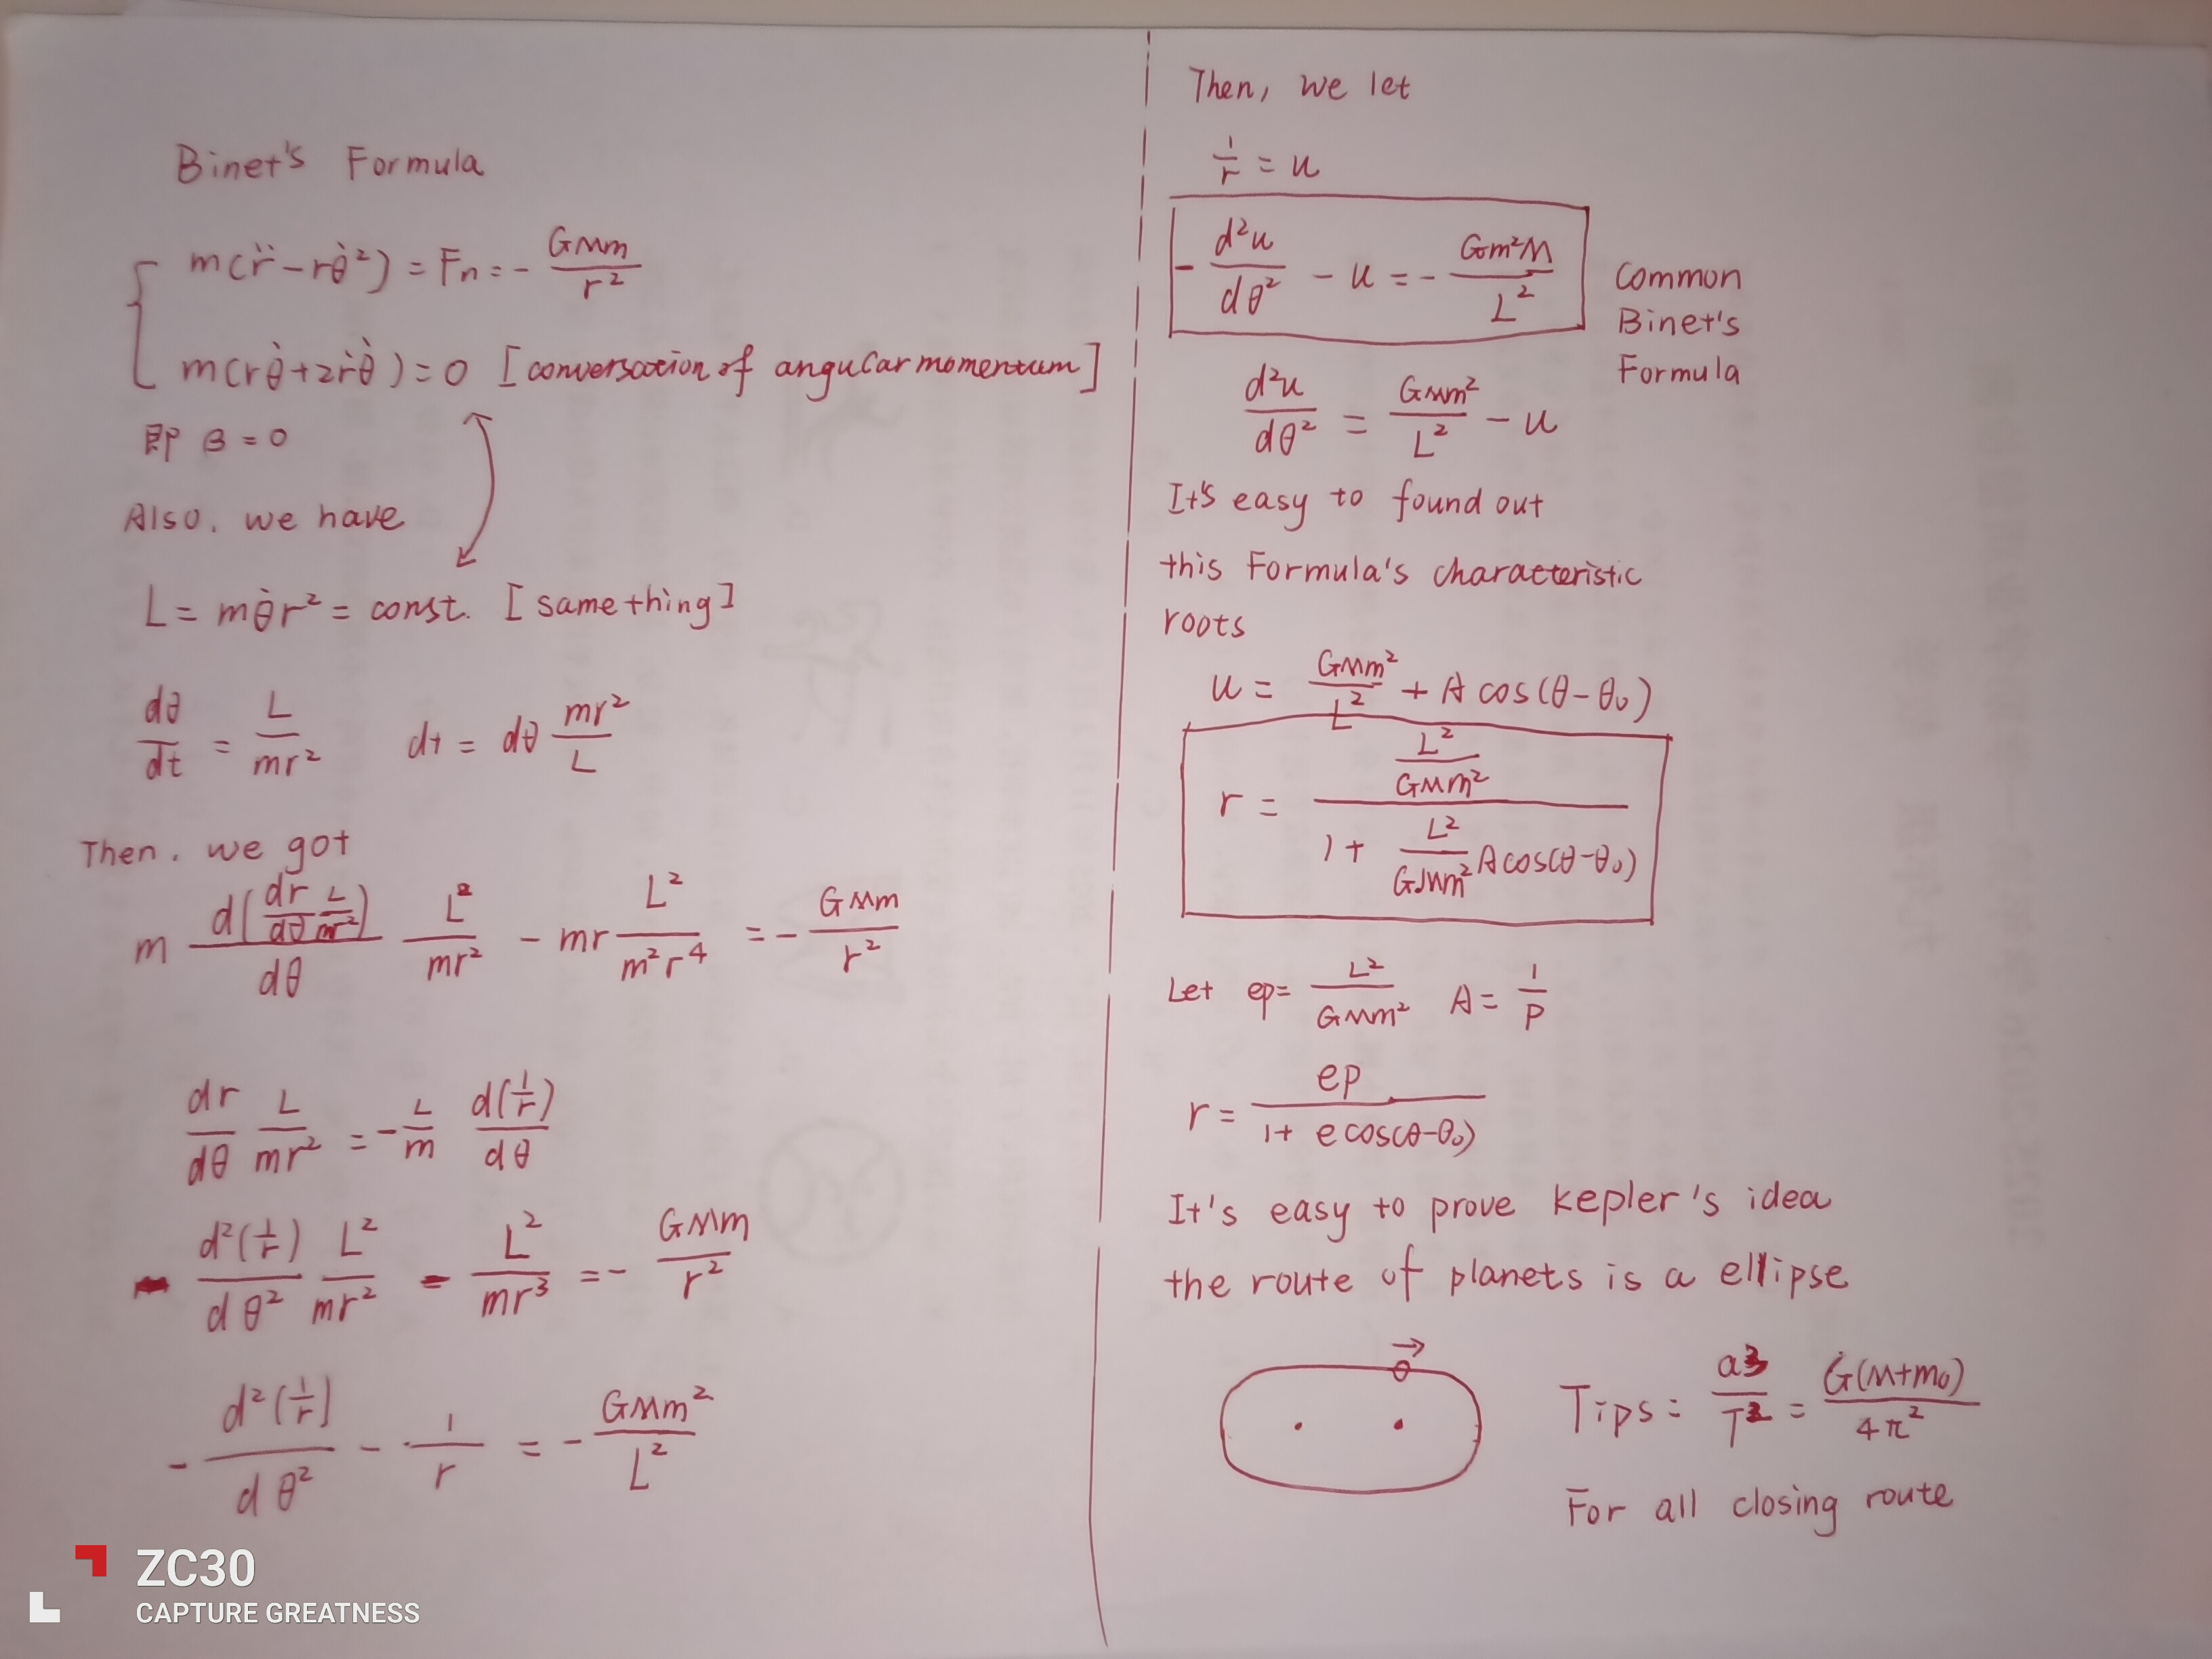 Binet's Formula
m(r̈ - rθ̇²) = Fn = - GMm/r²
m(rθ̇ + 2ṙθ̇) = 0 [conversation of angular momentum]
即 β = 0
Also, we have
L = mθ̇r² = const. [same thing]
dθ/dt = L/mr² dt = dθ mr²/L
Then, we got
m d(dr/dθ L/mr²)/dθ L/mr² - mr L²/m²r⁴ = - GMm/r²
dr/dθ L/mr² = - L/m d(1/r)/dθ
- d²(1/r)/dθ² L²/mr² - L²/mr³ = - GMm/r²
- d²(1/r)/dθ² - 1/r = - GMm²/L²
Then, we let
1/r = u
- d²u/dθ² - u = - Gm²M/L²
Common
Binet's
Formula
d²u/dθ² = GMm²/L² - u
It's easy to found out
this Formula's characteristic
roots
u = GMm²/L² + A cos(θ-θ₀)
r = (L²/GMm²)/(1 + L²/GMm² A cos(θ-θ₀))
Let ep = L²/GMm² A = 1/P
r = ep/(1 + e cos(θ-θ₀))
It's easy to prove kepler's idea
the route of planets is a ellipse
Tips: a³/T² = G(M+m₀)/4π²
For all closing route
ZC30
CAPTURE GREATNESS